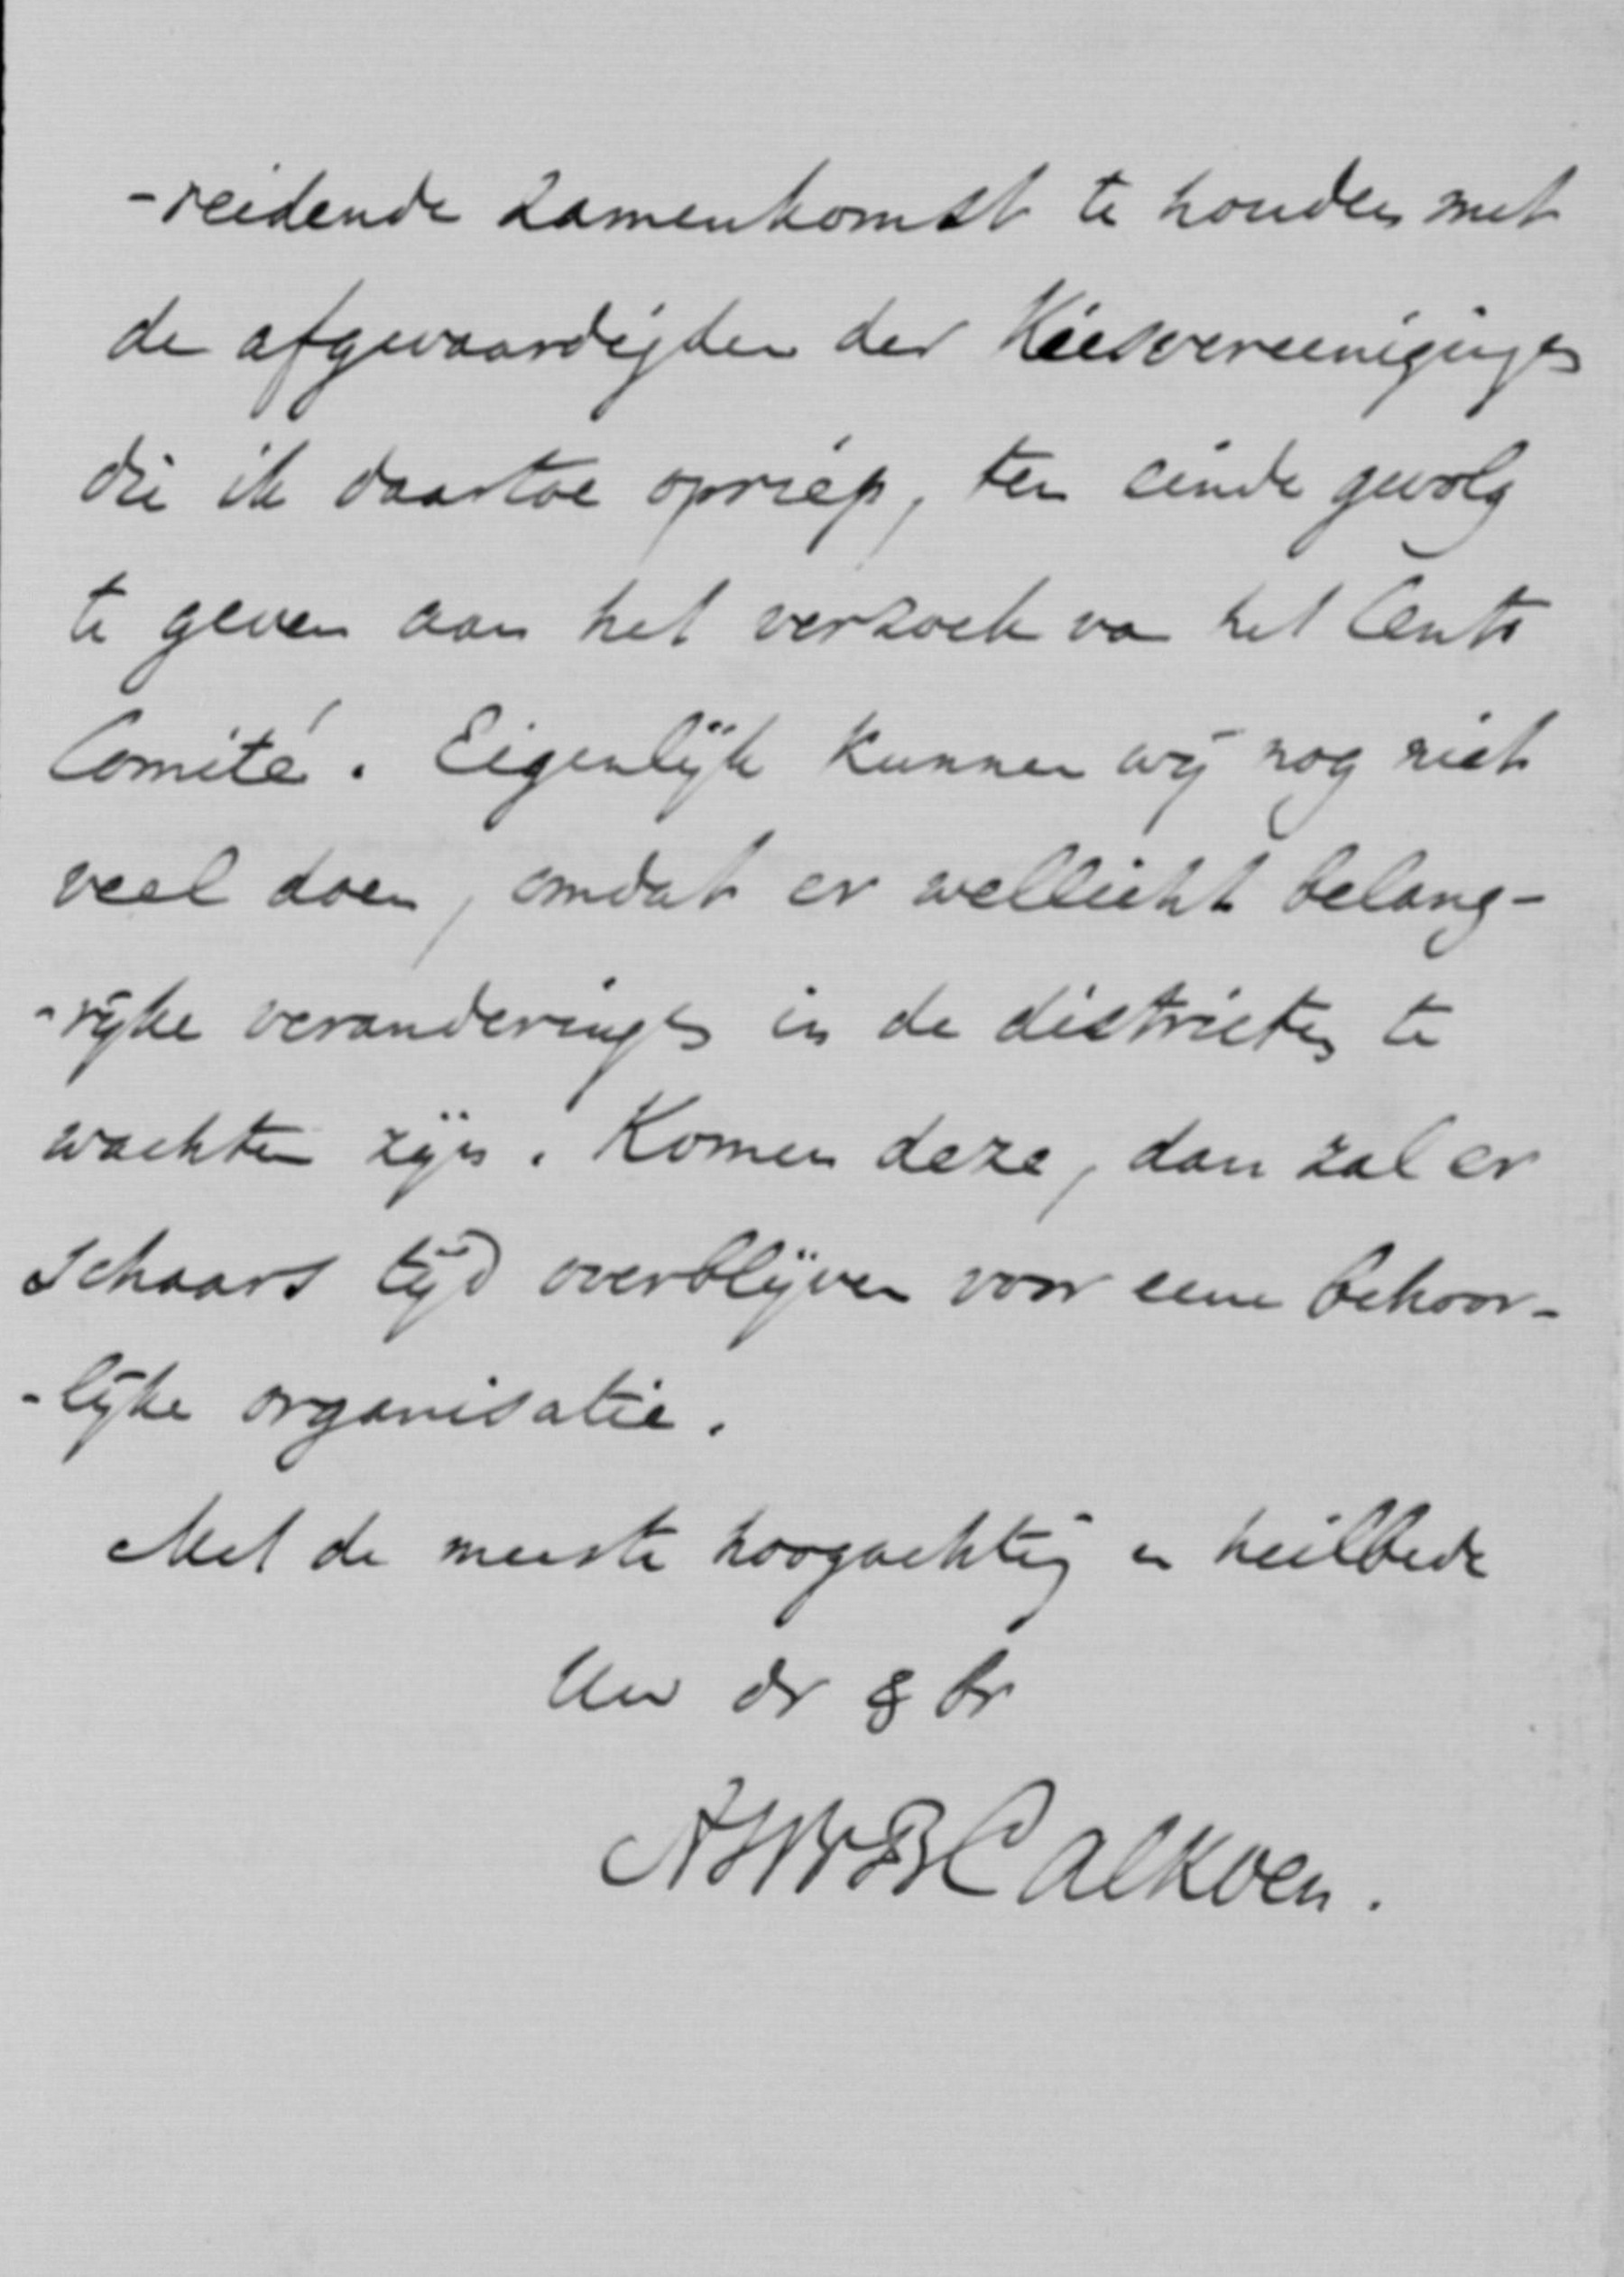 -reidende zamenkomst te houden met
de afgevaardigden der Kiesvereenigingen
die ik daartoe opriep, ten einde gevolg
te geven aan het verzoek van het Centr
Comité. Eigenlijk kunnen wij nog niet
veel doen, omdat er wellicht belang-
-rijke veranderingen in de districten te
wachten zijn. Komen deze, dan zal er
schaars tijd overblijven voor eene behoor-
-lijke organisatie.
Met de meeste hoogachting en heilbede
Uw dr & br
Calkoen.